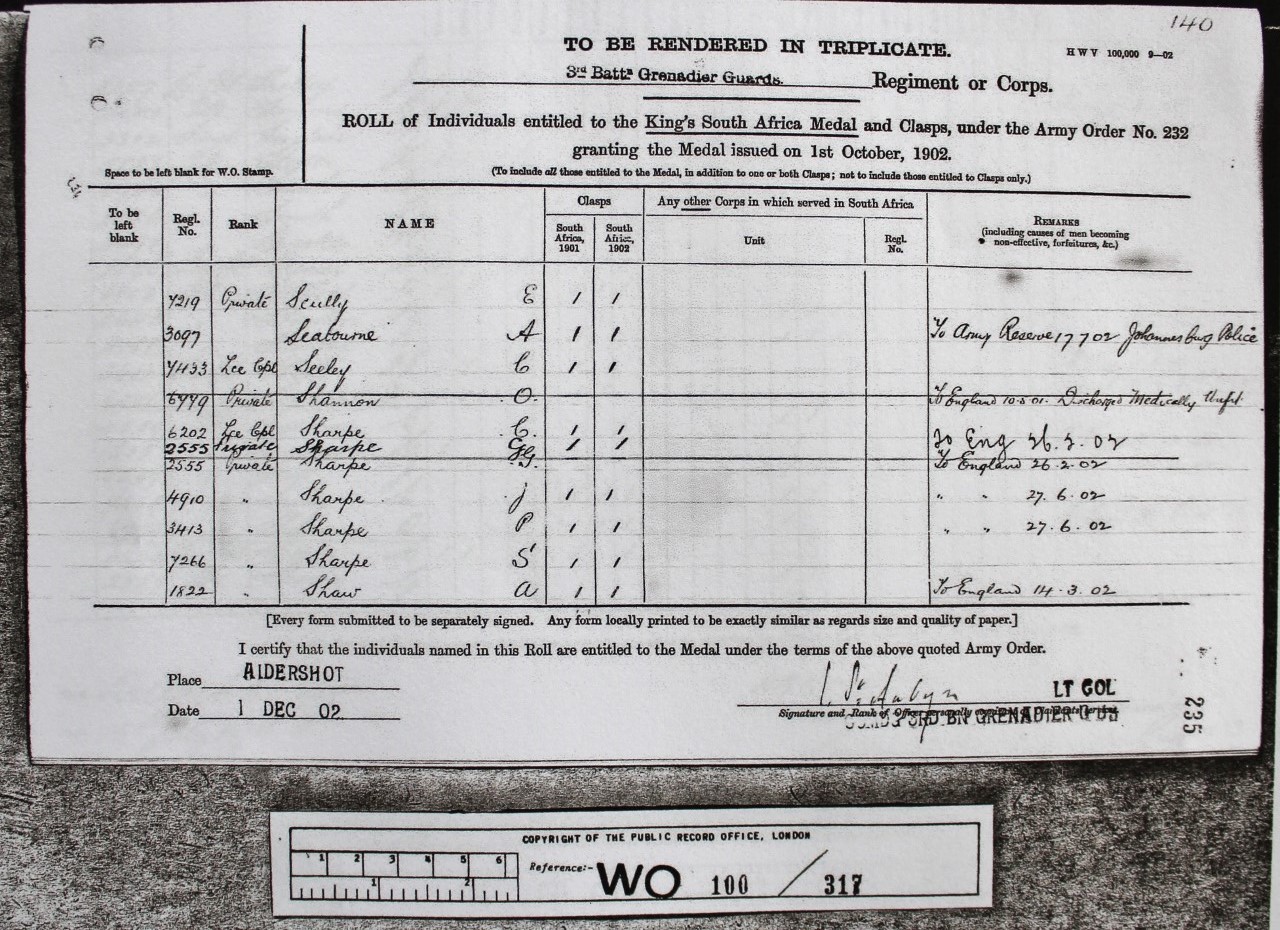 140
TO BE RENDERED IN TRIPLICATE.
H W V 100,000 9—02
3rd Battn Grenadier Guards. Regiment or Corps.
ROLL of Individuals entitled to the King's South Africa Medal and Clasps, under the Army Order No. 232
granting the Medal issued on 1st October, 1902.
Space to be left blank for W.O. Stamp.
(To include all those entitled to the Medal, in addition to one or both Clasps; not to include those entitled to Clasps only.)
To be left blank Regl. No. Rank NAME Clasps South Africa, 1901 South Africa, 1902 Any other Corps in which served in South Africa Unit Regl. No. REMARKS (including causes of men becoming non-effective, forfeitures, &c.)
7219 Private Scully E / /
3097 Seabourne A / / To Army Reserve 17 7 02 Johannesburg Police
7433 Lce Cpl Seeley C / /
6779 Private Shannon O. To England 10.5.01. Discharged Medically Unfit.
6202 Lce Cpl Sharpe C. / /
2555 Private Sharpe G / / To Eng 26.2.02
2555 Private Sharpe G. To England 26.2.02
4910 " Sharpe J / / " " 27.6.02
3413 " Sharpe P / / " " 27.6.02
7266 " Sharpe S / /
1822 " Shaw A / / To England 14.3.02
[Every form submitted to be separately signed. Any form locally printed to be exactly similar as regards size and quality of paper.]
I certify that the individuals named in this Roll are entitled to the Medal under the terms of the above quoted Army Order.
Place ALDERSHOT
Date 1 DEC 02
St. Aubyn LT COL
Signature and Rank of Officer personally
3RD BN GRENADIER GDS
235
COPYRIGHT OF THE PUBLIC RECORD OFFICE, LONDON
1 2 3 4 5 6
1 2
Reference:- WO 100 / 317